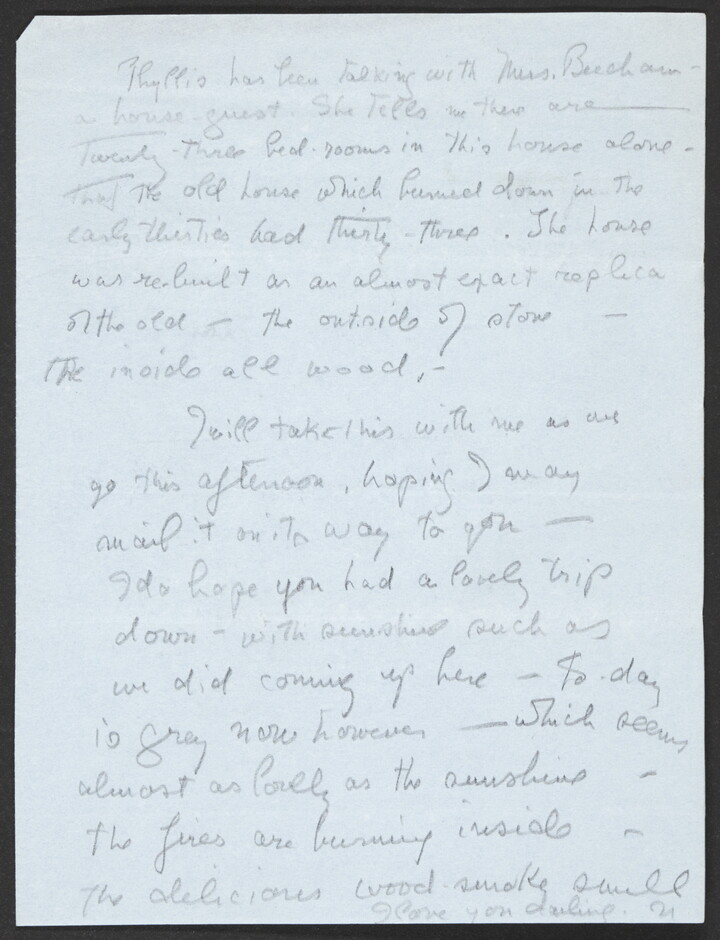 Phyllis has been talking with Mrs. Beecham -
a house-guest. She tells me there are
Twenty-three bed-rooms in this house alone -
That the old house which burned down in the
early thirties had thirty-three. The house
was re-built as an almost exact replica
of the old - the outside of stone -
The inside all wood, -
I will take this with me as we
go this afternoon, hoping I may
mail it on its way to you -
I do hope you had a lovely trip
down - with sunshine such as
we did coming up here - To-day
is grey now however - which seems
almost as lovely as the sunshine -
the fires are burning inside -
The delicious wood-smoke smell
I love you darling.